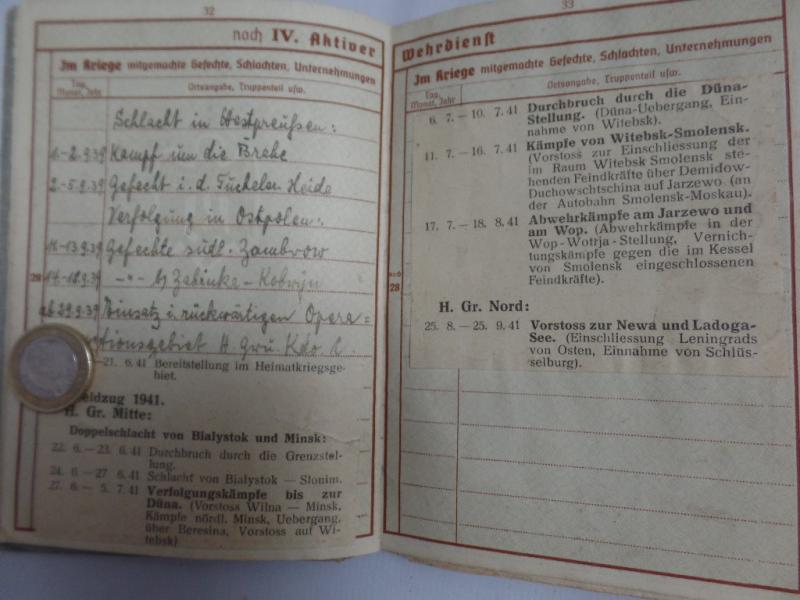 32
noch IV. Aktiver
Im Kriege mitgemachte Gefechte, Schlachten, Unternehmungen
Tag, Monat, Jahr
Ortsangabe, Truppenteil usw.
Schlacht in Westpreußen:
1.-2.9.39 Kampf um die Brahe
2.-5.9.39 Gefecht i. d. Tuchler Heide
Verfolgung in Ostpolen:
11.-13.9.39 Gefechte südl. Zambrow
14.-18.9.39 -"- b/ Zabinka-Kobryn
ab 29.9.39 Einsatz i. rückwärtigen Opera=
tionsgebiet H.
21. 6. 41 Bereitstellung im Heimatkriegsge-
biet.
eldzug 1941.
H. Gr. Mitte:
Doppelschlacht von Bialystok und Minsk:
22. 6. — 23. 6. 41 Durchbruch durch die Grenzstel-
lung.
24. 6. — 27 6. 41 Schlacht von Bialystok — Slonim.
27. 6. — 5. 7. 41 Verfolgungskämpfe bis zur
Düna. (Vorstoss Wilna — Minsk,
Kämpfe nördl. Minsk, Uebergang,
über Beresina, Vorstoss auf Wi-
tebsk)
28
33
Wehrdienst
Im Kriege mitgemachte Gefechte, Schlachten, Unternehmungen
Tag, Monat, Jahr
Ortsangabe, Truppenteil usw.
6. 7. — 10. 7. 41 Durchbruch durch die Düna-
Stellung. (Düna-Uebergang, Ein-
nahme von Witebsk).
11. 7. — 16. 7. 41 Kämpfe von Witebsk-Smolensk.
(Vorstoss zur Einschliessung der
im Raum Witebsk Smolensk ste-
henden Feindkräfte über Demidow-
Duchowschtschina auf Jarzewo (an
der Autobahn Smolensk-Moskau).
17. 7. — 18. 8. 41 Abwehrkämpfe am Jarzewo und
am Wop. (Abwehrkämpfe in der
Wop-Wotrja-Stellung, Vernich-
tungskämpfe gegen die im Kessel
von Smolensk eingeschlossenen
Feindkräfte).
28
H. Gr. Nord:
25. 8. — 25. 9. 41 Vorstoss zur Newa und Ladoga-
See. (Einschliessung Leningrads
von Osten, Einnahme von Schlüs-
selburg).